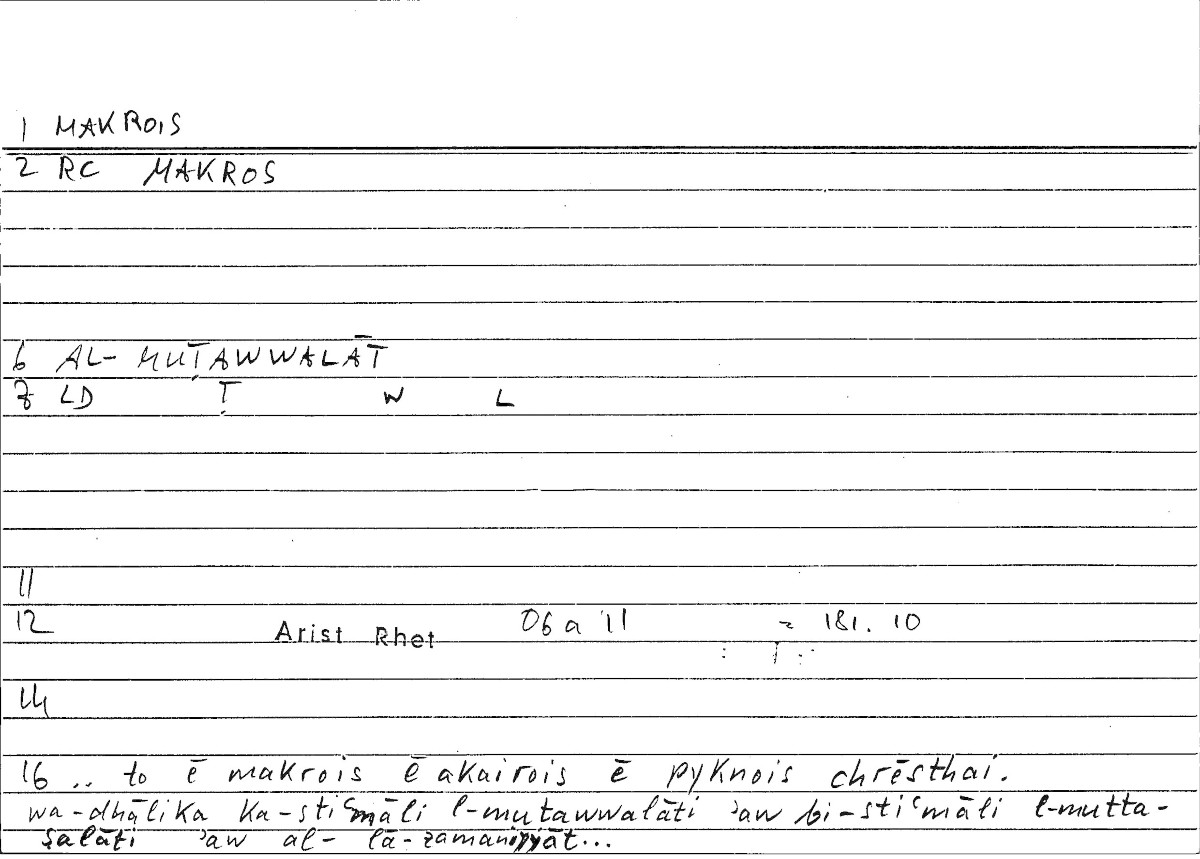 1 MAKROIS
2 RC MAKROS
6 AL- MUṬAWWALĀT
7 LD Ṭ W L
11
12 Arist Rhet 06 a 11 = 181. 10
14
16 .. to ē makrois ē akairois ē pyknois chrēsthai.
wa-dhālika ka-stiʿmāli l-mutawwalāti ʾaw bi-stiʿmāli l-mutta-
ṣalāti ʾaw al- lā-zamaniyyāt...